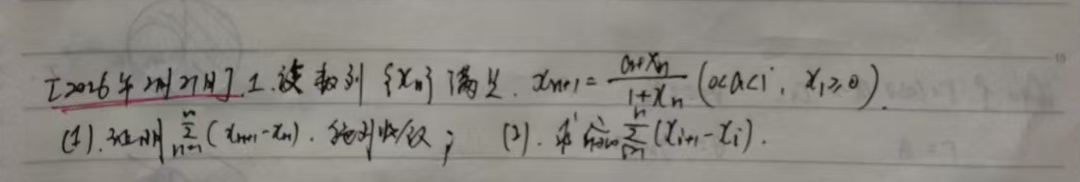 [2026年2月27日].1.设数列{xₙ}满足. xₙ₊₁ = (a+xₙ)/(1+xₙ) (0<a<1, x₁≥0).
(1).证明 ∑ₙ₌₁ⁿ (xₙ₊₁-xₙ).绝对收敛; (2).求 limₙ→∞ ∑ᵢ₌₁ⁿ (xᵢ₊₁-xᵢ).